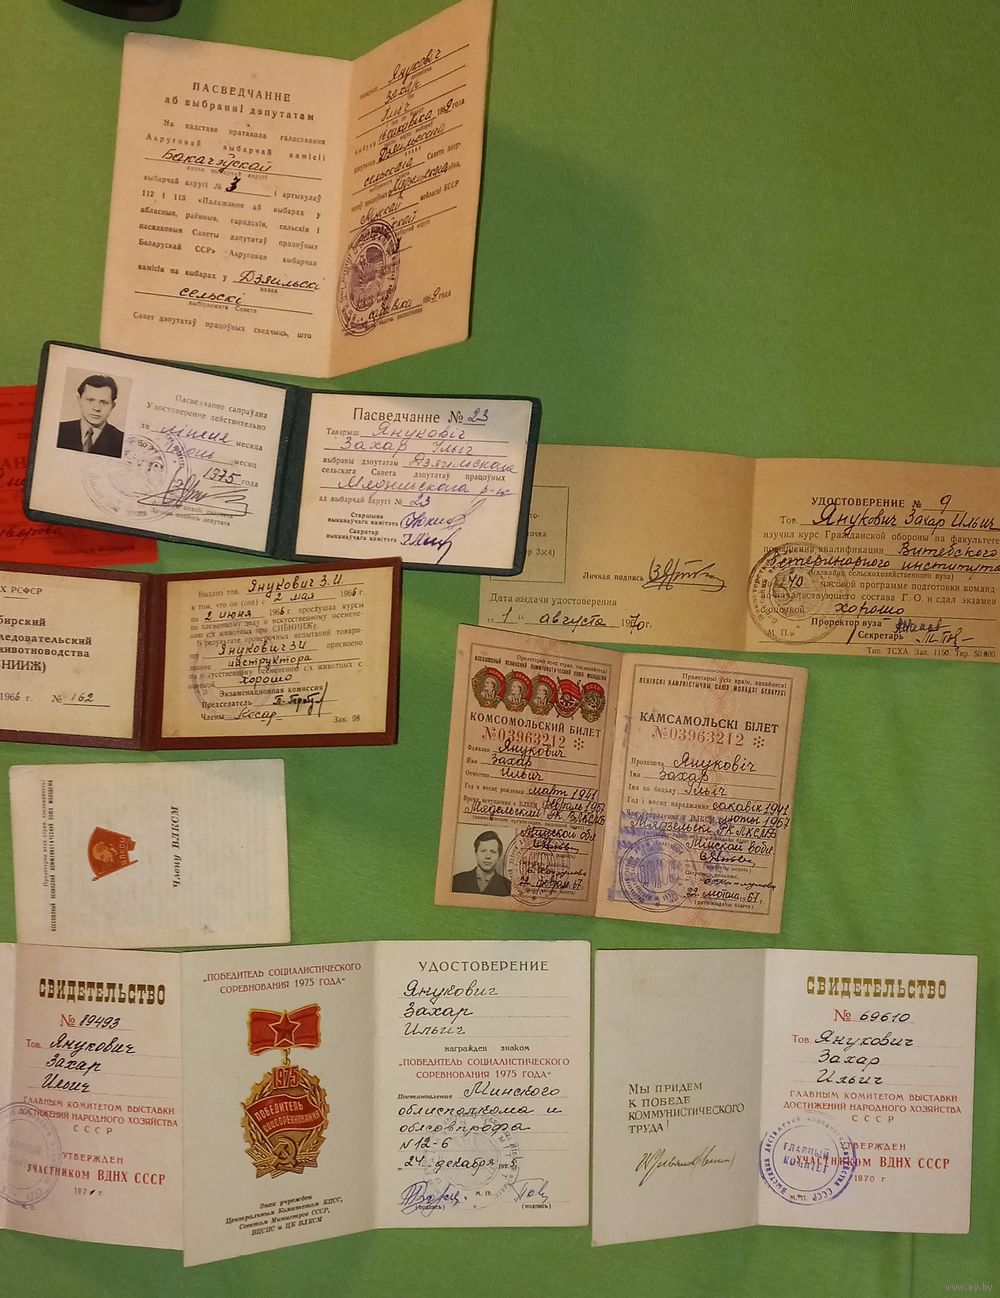 ПАСВЕДЧАННЕ
аб выбранні дэпутатам
На падставе пратакола галасавання
Акруговай выбарчай камісіі
Бакачэўскай
выбарчай акругі № 3 і артыкулаў
112 і 113 «Палажэння аб выбарах у
абласныя, раённыя, гарадскія, сельскія і
пасялковыя Саветы дэпутатаў працоўных
Беларускай ССР» Акруговая выбарчая
камісія па выбарах у Дзягільскі
сельскі
выбіраемага Савета
Савет дэпутатаў працоўных сведчыць, што
Януковіч
Захар
Ільіч
выбран 16 сакавіка 1969 года
дэпутатам Дзягільскага
сельскага Савета дэпу-
татаў працоўных
Мінскай вобласці БССР
сакавіка 1969 года
Пасведчанне сапраўдна
Удостоверение действительно
да ліпеня месяца
июль месяц
1975 года
Пасведчанне № 23
Таварыш Януковіч
Захар Ільіч
выбраны дэпутатам Дзягільскага
сельскага Савета дэпутатаў працоўных
Мядзельскага р-на
ад выбарчай акругі № 23
Старшыня
выканаўчага камітэта
Сакратар
выканаўчага камітэта
Личная подпись
Дата выдачи удостоверения
„1“ августа 1970 г.
УДОСТОВЕРЕНИЕ № 9
Тов. Янукович Захар Ильич
изучил курс Гражданской обороны на факультете
повышения квалификации Витебского
Ветеринарного института
(название сельскохозяйственного вуза)
40 часовой программе подготовки команд-
но-начальствующего состава Г. О. и сдал экзамен
с оценкой хорошо
Проректор вуза
Секретарь
М. П.
Тип. ТСХА Зак. 1150. Тир. 50 000
Х РСФСР
бирский
ледовательский
животноводства
БНИИЖ)
1966 г. № 162
Выдано тов. Янукович З.И.
в том, что он (она) с 2 мая 1966 г.
по 2 июня 1966 г. прослушал курсы
по племенному делу и искусственному осемене-
нию с/х животных при СИБНИИЖе.
В результате проверочных испытаний товари-
щу Янукович З.И. присвоено
звание инструктора
по искусственному осеменению с/х животных с
оценкой хорошо
Экзаменационная комиссия
Председатель
Члены
Зак. 98
Пролетарии всех стран, соединяйтесь!
ВСЕСОЮЗНЫЙ ЛЕНИНСКИЙ КОММУНИСТИЧЕСКИЙ СОЮЗ МОЛОДЕЖИ
ВЛКСМ
Члену ВЛКСМ
Пролетарии всех стран, соединяйтесь!
ВСЕСОЮЗНЫЙ ЛЕНИНСКИЙ КОММУНИСТИЧЕСКИЙ СОЮЗ МОЛОДЕЖИ
КОМСОМОЛЬСКИЙ БИЛЕТ
№ 03963212
Фамилия Янукович
Имя Захар
Отчество Ильич
Год и месяц рождения март 1941
Время вступления в ВЛКСМ февраль 1967
Мядельский РК ЛКСМБ
Минской обл.
22 февраля 67.
Пралетарыі ўсіх краін, яднайцеся!
ЛЕНІНСКІ КАМУНІСТЫЧНЫ САЮЗ МОЛАДЗІ БЕЛАРУСІ
КАМСАМОЛЬСКІ БІЛЕТ
№ 03963212
Прозвішча Януковіч
Імя Захар
Імя па бацьку Ільіч
Год і месяц нараджэння сакавік 1941
люты 1967
Мядзельскі РК ЛКСМБ
Мінскай вобл.
22 лютага 1967 г.
СВИДЕТЕЛЬСТВО
№ 89493
Тов. Янукович
Захар
Ильич
ГЛАВНЫМ КОМИТЕТОМ ВЫСТАВКИ
ДОСТИЖЕНИЙ НАРОДНОГО ХОЗЯЙСТВА
СССР
УТВЕРЖДЕН
УЧАСТНИКОМ ВДНХ СССР
1971 г.
„ПОБЕДИТЕЛЬ СОЦИАЛИСТИЧЕСКОГО
СОРЕВНОВАНИЯ 1975 ГОДА“
1975
ПОБЕДИТЕЛЬ
СОЦСОРЕВНОВАНИЯ
Знак учрежден
Центральным Комитетом КПСС,
Советом Министров СССР,
ВЦСПС и ЦК ВЛКСМ
УДОСТОВЕРЕНИЕ
Янукович
Захар
Ильич
награжден знаком
„ПОБЕДИТЕЛЬ СОЦИАЛИСТИЧЕСКОГО
СОРЕВНОВАНИЯ 1975 ГОДА“
Постановление Минского
облисполкома и
облсовпрофа
N 12-6
„24„ декабря 1975 г.
(подпись) М. П. (подпись)
МЫ ПРИДЕМ
К ПОБЕДЕ
КОММУНИСТИЧЕСКОГО
ТРУДА!
СВИДЕТЕЛЬСТВО
№ 69610
Тов. Янукович
Захар
Ильич
ГЛАВНЫМ КОМИТЕТОМ ВЫСТАВКИ
ДОСТИЖЕНИЙ НАРОДНОГО ХОЗЯЙСТВА
СССР
УТВЕРЖДЕН
УЧАСТНИКОМ ВДНХ СССР
1970 г.
ГЛАВНЫЙ
КОМИТЕТ
М. П.
www.ay.by